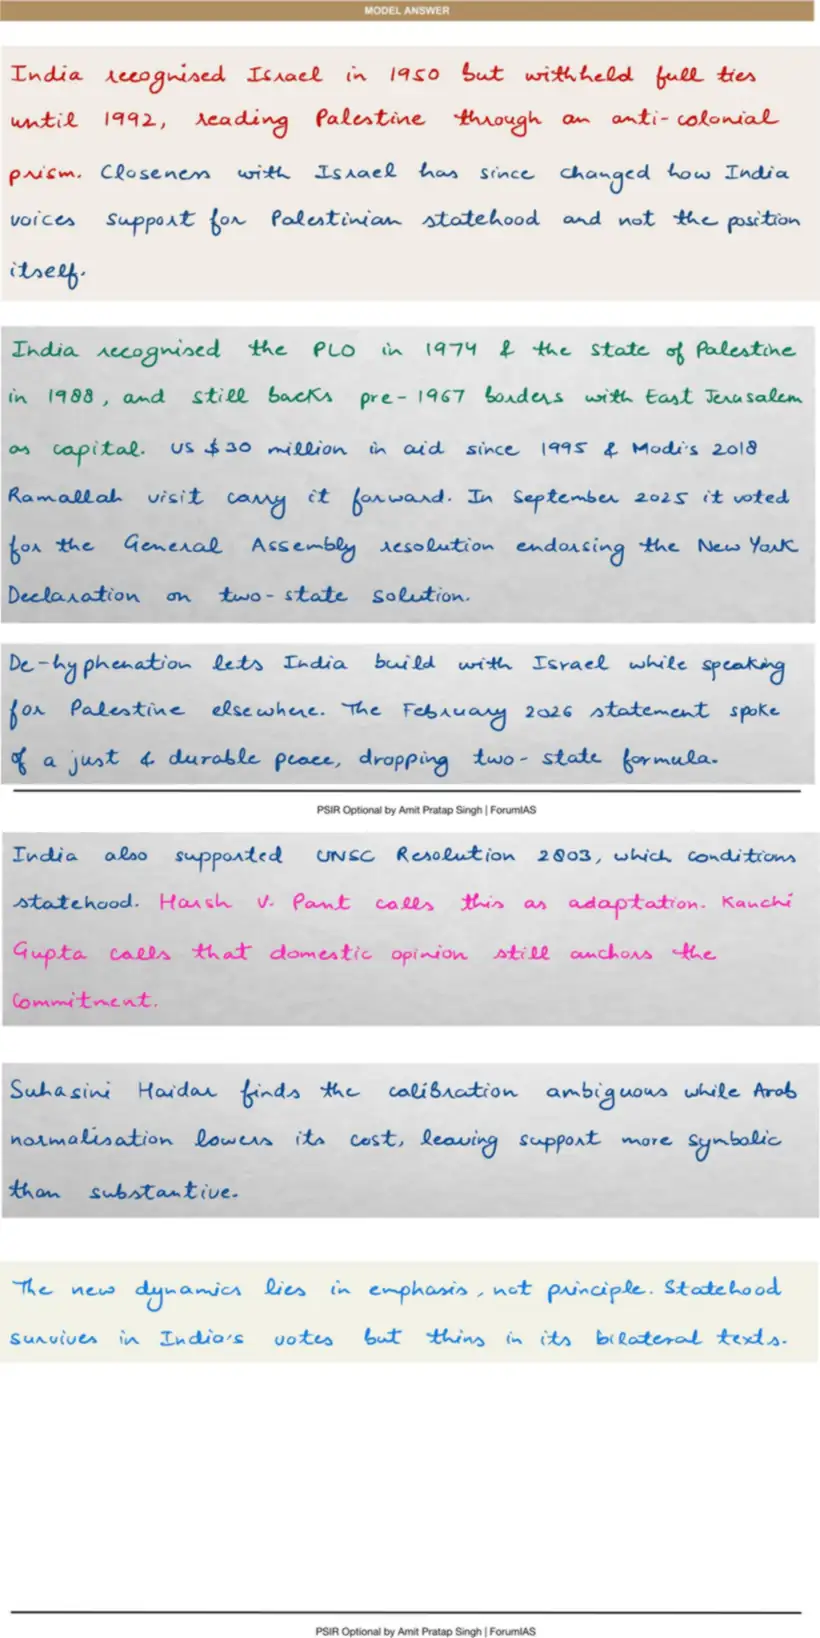 MODEL ANSWER
India recognised Israel in 1950 but withheld full ties
until 1992, reading Palestine through an anti-colonial
prism. Closeness with Israel has since changed how India
voices support for Palestinian statehood and not the position
itself.
India recognised the PLO in 1974 & the state of Palestine
in 1988, and still backs pre-1967 borders with East Jerusalem
as capital. US $30 million in aid since 1995 & Modi's 2018
Ramallah visit carry it forward. In September 2025 it voted
for the General Assembly resolution endorsing the New York
Declaration on two-state solution.
De-hyphenation lets India build with Israel while speaking
for Palestine elsewhere. The February 2026 statement spoke
of a just & durable peace, dropping two-state formula.
PSIR Optional by Amit Pratap Singh | ForumIAS
India also supported UNSC Resolution 2803, which conditions
statehood. Harsh V. Pant calls this as adaptation. Kanchi
Gupta calls that domestic opinion still anchors the
commitment.
Suhasini Haidar finds the calibration ambiguous while Arab
normalisation lowers its cost, leaving support more symbolic
than substantive.
The new dynamics lies in emphasis, not principle. Statehood
survives in India's votes but thins in its bilateral texts.
PSIR Optional by Amit Pratap Singh | ForumIAS